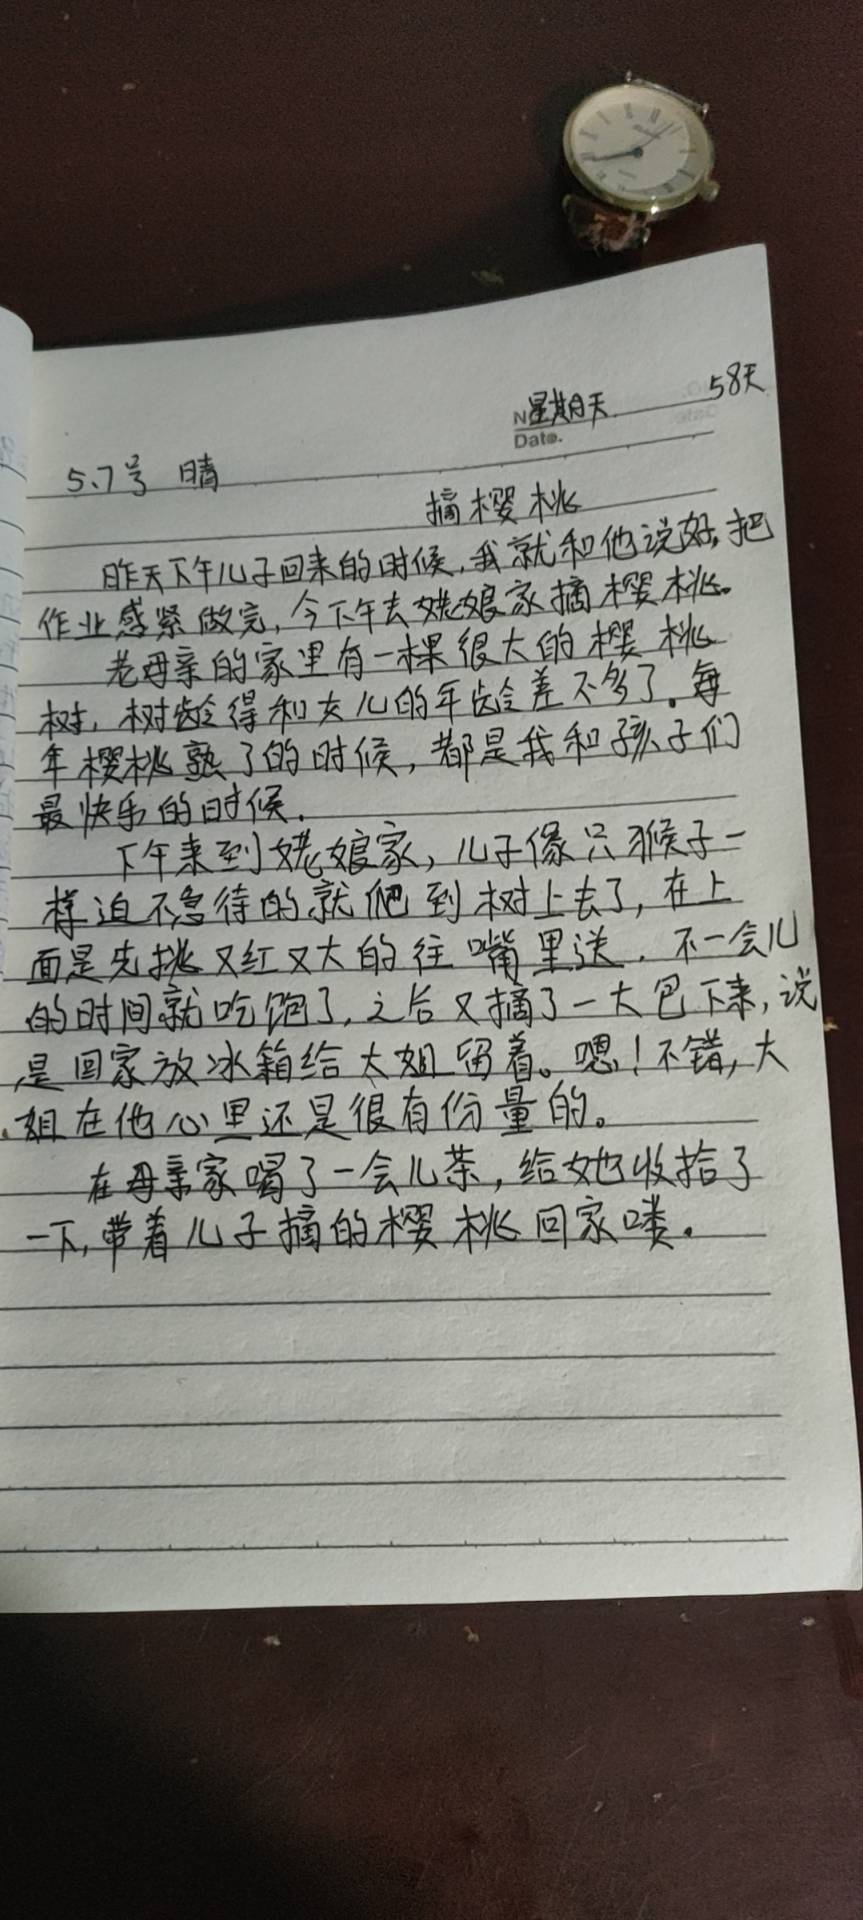 星期天 58天
Date.
5.7号 晴
摘樱桃
昨天下午儿子回来的时候,我就和他说好,把
作业感紧做完,今下午去姥娘家摘樱桃。
老母亲的家里有一棵很大的樱桃
树,树龄得和女儿的年龄差不多了。每
年樱桃熟了的时候,都是我和孩子们
最快乐的时候.
下午来到姥娘家,儿子像只猴子一
样迫不急待的就爬到树上去了,在上
面是先挑又红又大的往嘴里送.不一会儿
的时间就吃饱了,之后又摘了一大包下来,说
是回家放冰箱给大姐留着。嗯!不错,大
姐在他心里还是很有份量的。
在母亲家喝了一会儿茶,给她收拾了
一下,带着儿子摘的樱桃回家喽.